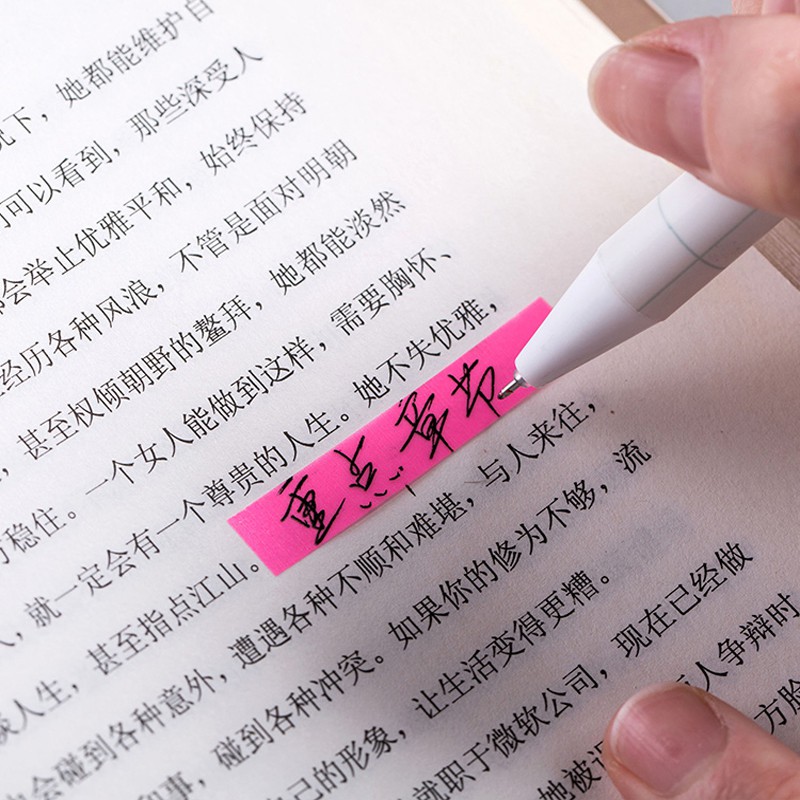 况下，她都能维护自
们可以看到，那些深受人
都会举止优雅平和，始终保持
经历各种风浪，不管是面对明朝
，甚至权倾朝野的鳌拜，她都能淡然
稳住。一个女人能做到这样，需要胸怀、
，就一定会有一个尊贵的人生。她不失优雅，
人生，甚至指点江山。
重点章节
会碰到各种意外，遭遇各种不顺和难堪，与人来往，
和事，碰到各种冲突。如果你的修为不够，流
己的形象，让生活变得更糟。
就职于微软公司，现在已经做
她被
人争辩时
方脸